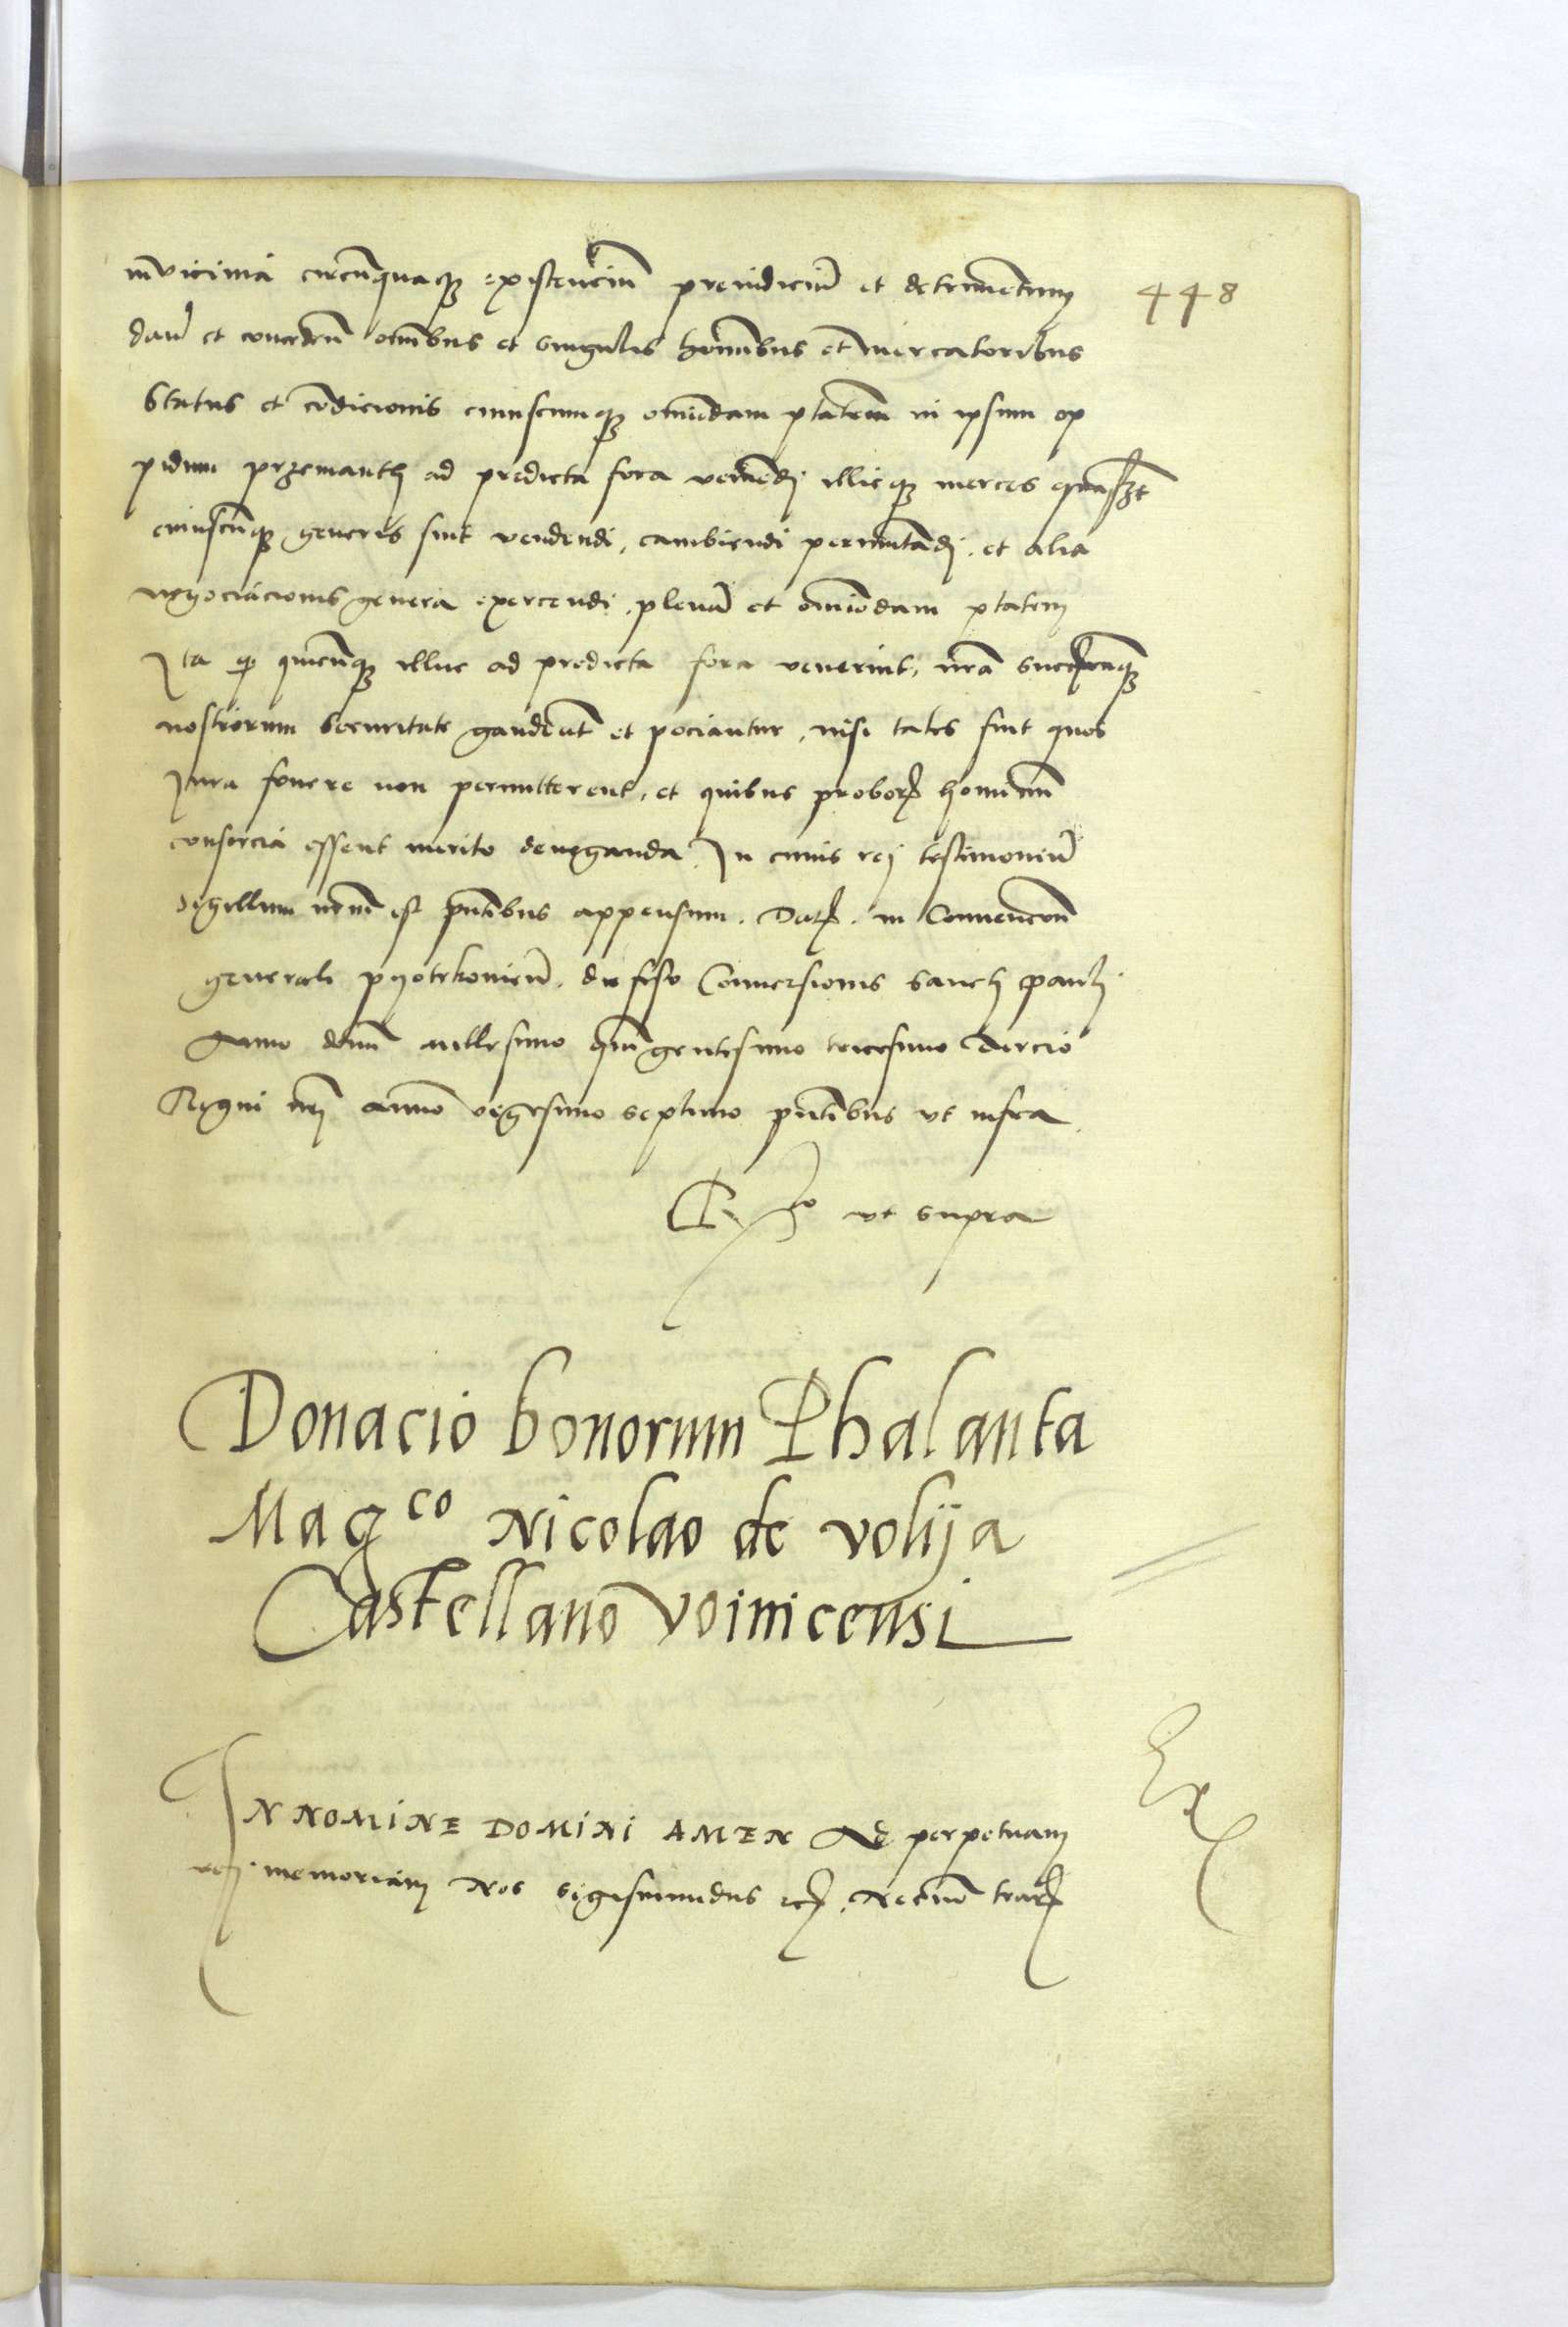 in vicinia circu͞quaq; existenciu͞ preiudiciu͞ et detrimentum
448
dan͞ et conceden͞ omnibus et singulis homi͞bus et mercatoribus
status et co͞dicionis cuiuscumq; omi͞odam p͞tatem in ipsum op
pidum przemanth ad predicta fora veniendj illicq; merces
cuiuscu͞q; generis sint vendendi, cambiendi permutandj, et alia
negociacionis genera exercendi, plena͞ et omi͞odam p͞tatem
Ita q quicu͞q; illuc ad predicta fora venerint, nr͞a
nostrorum securitate gaudeant et pociantur, nisi tales sint quos
Jura fouere non permitterent, et quibus probor͞ hominu͞
consorcia essent merito deneganda. In cuius rej testimoniu͞
sigillum nr͞m est pn͞tibus appensum. Dat͞. in Conuencion͞
generali pyotrkouien͞. die festo Conuersionis sancti Paulj.
Anno domi͞ millesimo quingentesimo tricesimo tercio
Regni nr͞j anno vigesimo septimo pn͞tibus vt infra.
ut supra
Donacio bonorum Phalanta
Mag^co Nicolao de volija
Castellano Voinicensi
Ex
IN NOMINE DOMINI AMEN Ad perpetuam
rej memoriam Nos Sigismundus etc͞. Recttor͞